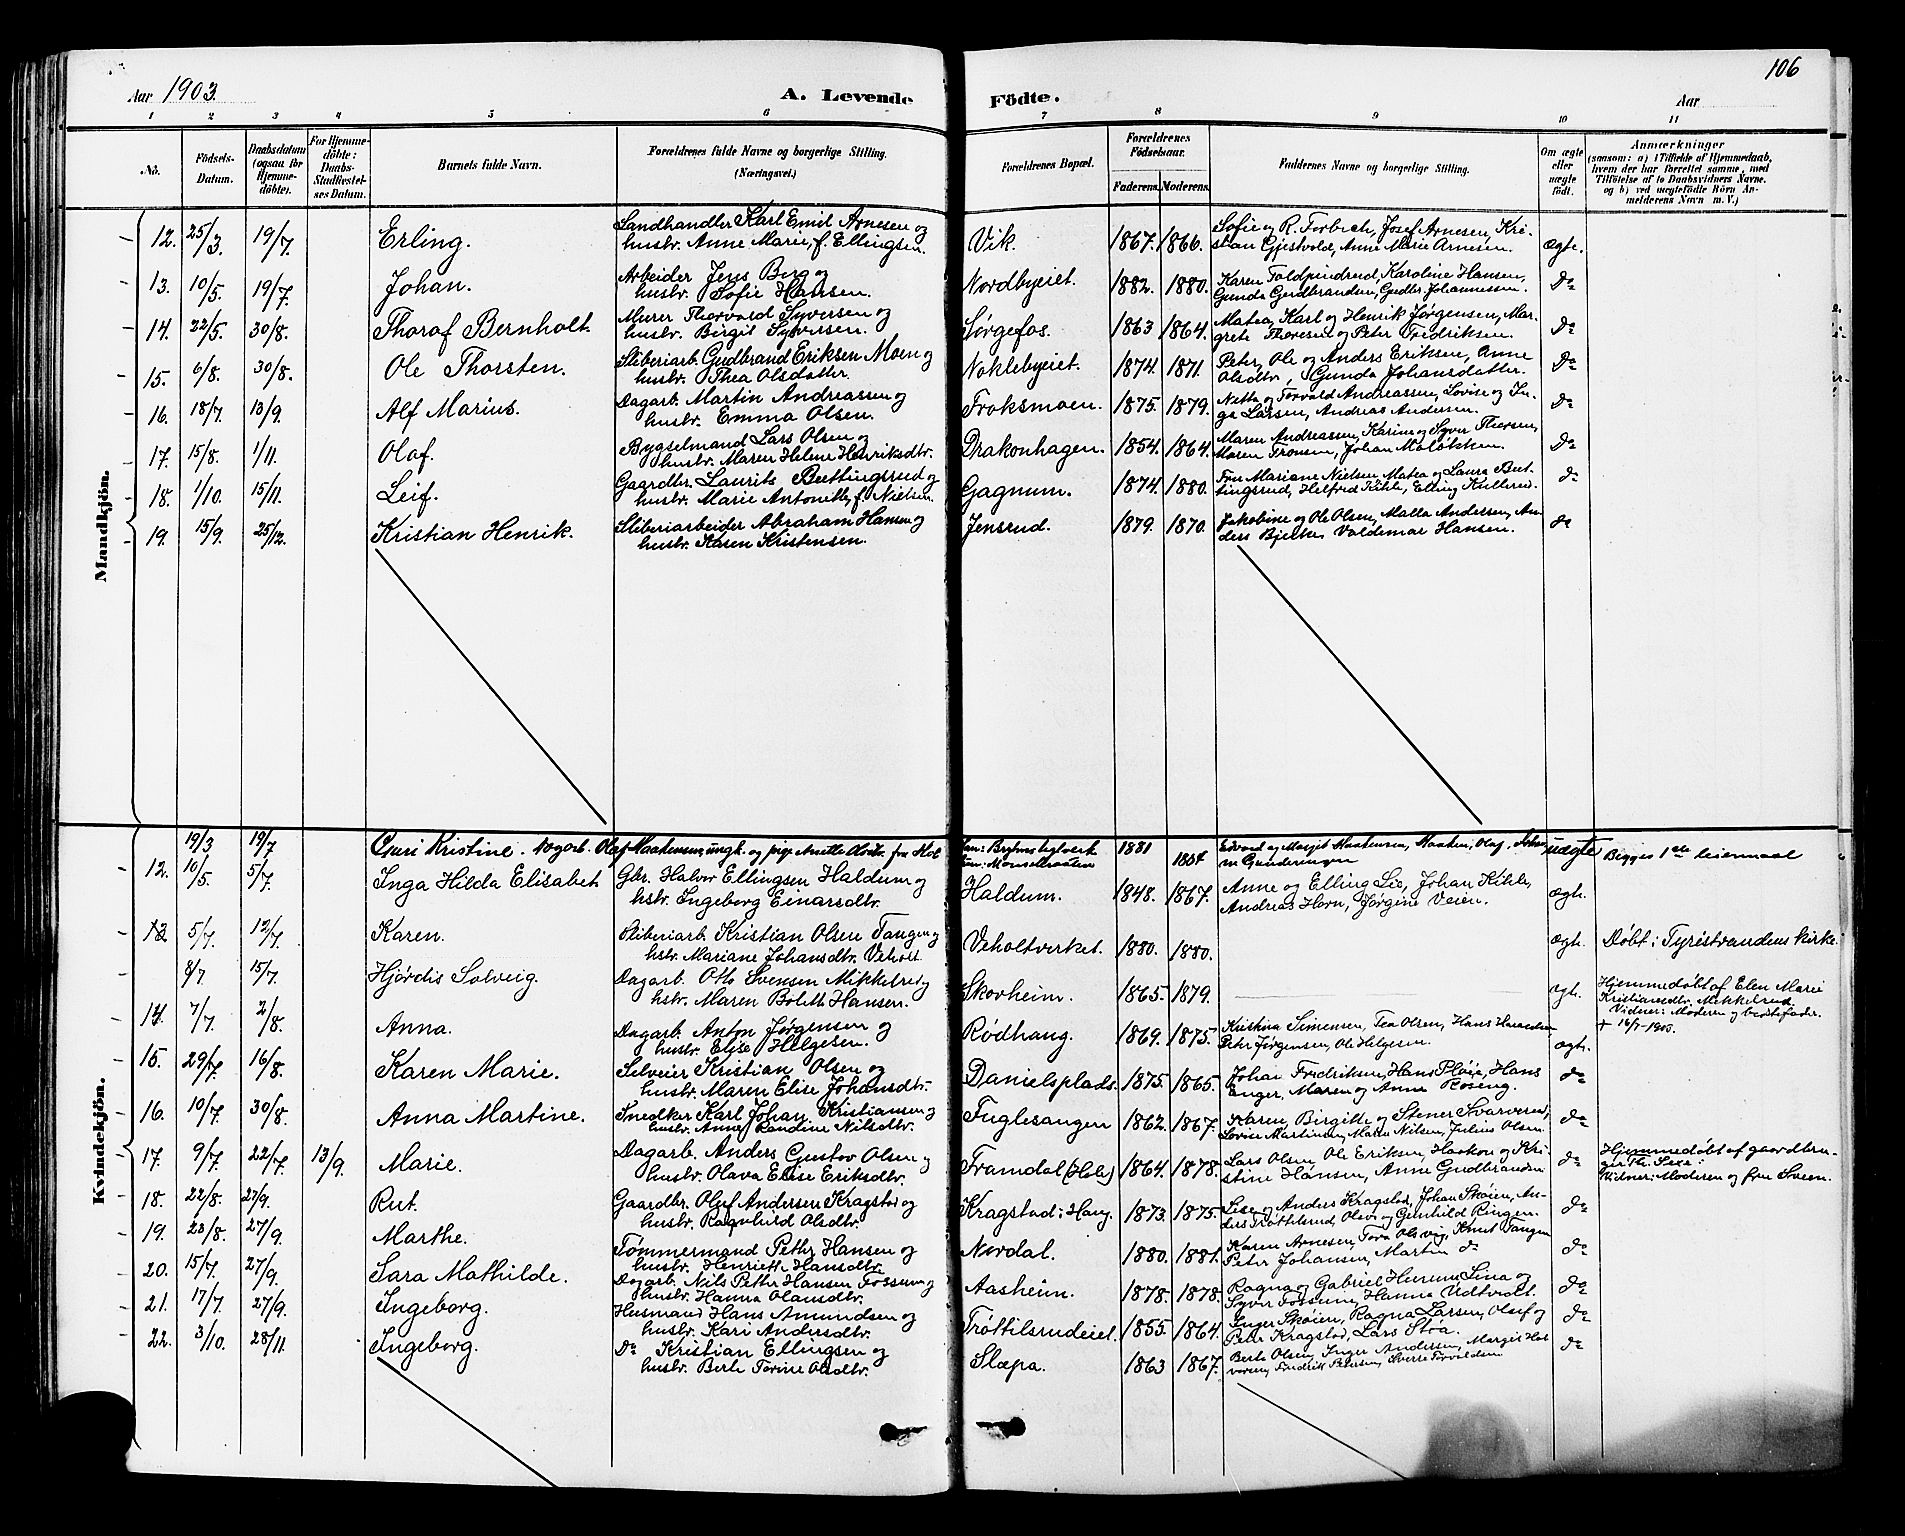 Aar 1903.
A. Levende Födte.
Aar
106
1 2 3 4 5 6 7 8 9 10 11
No.
Födsels-Datum.
Daabsdatum (ogsaa for Hjemme-döbte).
For Hjemme-döbte: Daabs-Stadfæstel-ses Datum.
Barnets fulde Navn.
Forældrenes fulde Navne og borgerlige Stilling. (Næringsvei.)
Forældrenes Bopæl.
Forældrenes Födselsaar.
Faderens. Moderens.
Faddernes Navne og borgerlige Stilling.
Om ægte eller uægte födt.
Anmærkninger
(saasom: a) i Tilfælde af Hjemmedaab, hvem der har forrettet samme, med Tilföielse af to Daabsvidners Navne, og b) ved uægtefödte Börn An-melderens Navn m. V.)
Mandkjön.
12. 25/3. 19/7. Erling. Landhandler Karl Emil Arnesen og Vik. 1867. 1866. Sofie og R. Forbech, Josef Arnesen, Kri- ægte.
hustr. Anne Marie, f. Ellingsen. stian Gjestvold, Anne Marie Arnesen.
13. 10/5. 19/7. Johan. Arbeider Jens Berg og Nordbyeiet. 1882. 1880. Karen Karoline Hansen, do
hustr. Sofie Hansen. Gunda Gudbrandsen, Gudbr. Johannessen.
14. 22/5. 30/8. Thoraf Bernholt. Murer Thorvard Syversen og Sørgefos. 1863 1864. Matea, Karl og Henrik Jørgensen, Mar- do
hustr. Birgit Syversen. grete Thoresen og Peter Fredriksen.
15. 6/8. 30/8. Ole Thorsten. Sliberiarb. Gudbrand Eriksen Moen og Noklebyeiet. 1874. 1871. Peter, Ole og Anders Eriksen, Anne do
hustr. Thea Olsdatter. Olsdtr, Gunda Johansdatter.
16. 18/7. 13/9. Alf Marius. Dagarb. Martin Andreassen og Froksmoen. 1875. 1879. Netta og Torvald Andreassen, Lovise og In- do
hustr. Emma Olsen. ga Larsen, Andreas Andersen.
17. 15/8. 1/11. Olaf. Bygselmand Lars Olsen og Drakonhagen. 1854. 1864. Maren Andreassen, Karine og Syver Thoresen, do
hustr. Maren Helene Henriksdtr. Maren Tronsen, Johan
18. 1/10. 15/11. Leif. Gaardbr. Laurits Buttingsrud og Gagnum. 1874. 1880. Fru Mariane Nielsen, Matea og Laura But- do
hustr. Marie Antonette, f. Nielsen. tingsrud, Helfred Kihle, Elling Kullerud.
19. 15/9. 25/12. Kristian Henrik. Sliberiarbeider Abraham Hansen og Jensrud. 1879. 1870. Jakobine og Ole Olsen, Malla Andersen, An- do
hustr. Karen Kristensen. ders Bjerke, Valdemar Hansen.
Kvindekjön.
19/3 19/7 Guri Kristine. Dagarb. Olaf Haakensen, ungk. og pige Anette Olsdtr. fra Hol Han: Bryns teglverk 1881 Edvard og Margit Haakensen, Haaken, Olaf, uægte Begges 1ste leiermaal
1884
12. 10/5. 5/7. Inga Hilda Elisabet Gbr. Halvor Ellingsen Haldum og Haldum. 1848. 1867. Anne og Elling Lie, Johan Kihle, ægte.
hstr. Ingeborg Einarsdtr. Andreas Horn, Jørgine Veien.
13 5/7. 12/7. Karen. Sliberiarb. Kristian Olsen Tangen og Veholtverket. 1880. 1880. ægte. Døbt i Tyristrandens kirke.
hstr. Mariane Johansdtr. Veholt
8/7 15/7. Hjørdis Solveig. Dagarb. Otto Svensen Mikkelrud og Skovheim. 1865. 1879. ægt. Hjemmedøbt af Elen Marie
hstr. Maren Bolette Hansen. Kristiansdtr. Mikkelrud.
Vidner: Moderen og bedstefader.
+ 16/7-1903.
14. 7/7. 2/8. Anna. Dagarb. Anton Jørgensen og Rødhaug. 1869. 1875. Kristina Simensen, Tea Olsen, Hans ægte.
hustr. Elise Helgesen. Petr Jørgensen, Ole Helgesen.
15. 29/7. 16/8. Karen Marie. Selveier Kristian Olsen og Danielsplads. 1875. 1865. Johan Fredriksen, Hans Pløie, Hans do
hustr. Maren Elise Johansdtr. Enger, Maren og Anne Roseng.
16. 10/7. 30/8. Anna Martine. Snedker Karl Johan Kristiansen og Fuglesangen 1862. 1867. Karen, Birgitte og Stener Svarverud, do
hustr. Anne Randine Nilsdtr. Lovise Martinsen, Maren Nilsen, Julius Olsen
17. 9/7. 22/7. 13/9. Marie. Dagarb. Anders Gustav Olsen og Framdal (Hole) 1864. 1878. Lars Olsen, Ole Eriksen, Haakon og Kri- do Hjemmedøbt af gaardbru-
hustr. Olava Elise Eriksdtr. stine Hansen, Anne Gudbrandsen ger Th. Saxe:
Vidner: Moderen og fru Sveen.
18. 22/8. 27/9. Rut. Gaardbr. Oluf Andersen Kragstad og Kragstad i Haug. 1873. 1875. Lise og Anders Kragstad, Johan Skøien, An- do
hustr. Ragnhild Olsdtr. ders Trøttelsrud, Olava og Gunhild Ringen.
19. 23/8. 27/9. Marthe. Tømmermand Petter Hansen og Nordal. 1880. 1881. Karen Arnesen, Tora Olsvig, Knut Tangen do
hustr. Henriette Hansdtr. Peter Johansen, Martin do
20. 15/7. 27/9. Sara Mathilde. Dagarb. Nils Petter Hansen Fossum og Aasheim. 1878. 1878. Ragna og Gabriel Lina og do
hustr. Hanna Olausdtr. Syver Fossum, Hanna Udtvedt.
21. 17/7. 27/9. Ingeborg. Husmand Hans Amundsen og Trøttilsrudeiet. 1855. 1864. Inger Skøien, Ragna Larsen, Oluf og do
hustr. Kari Andersdtr. Petr Kragstad, Lars Stoa.
22. 3/10. 28/11. Ingeborg. do Kristian Ellingsen og Slæpa. 1863 1867. Berte Olsen, Inger Andersen, Margit Hal- do
hustr. Berte Torine Olsdtr. vorsen, Fredrik Petersen, Sverre Torvaldsen